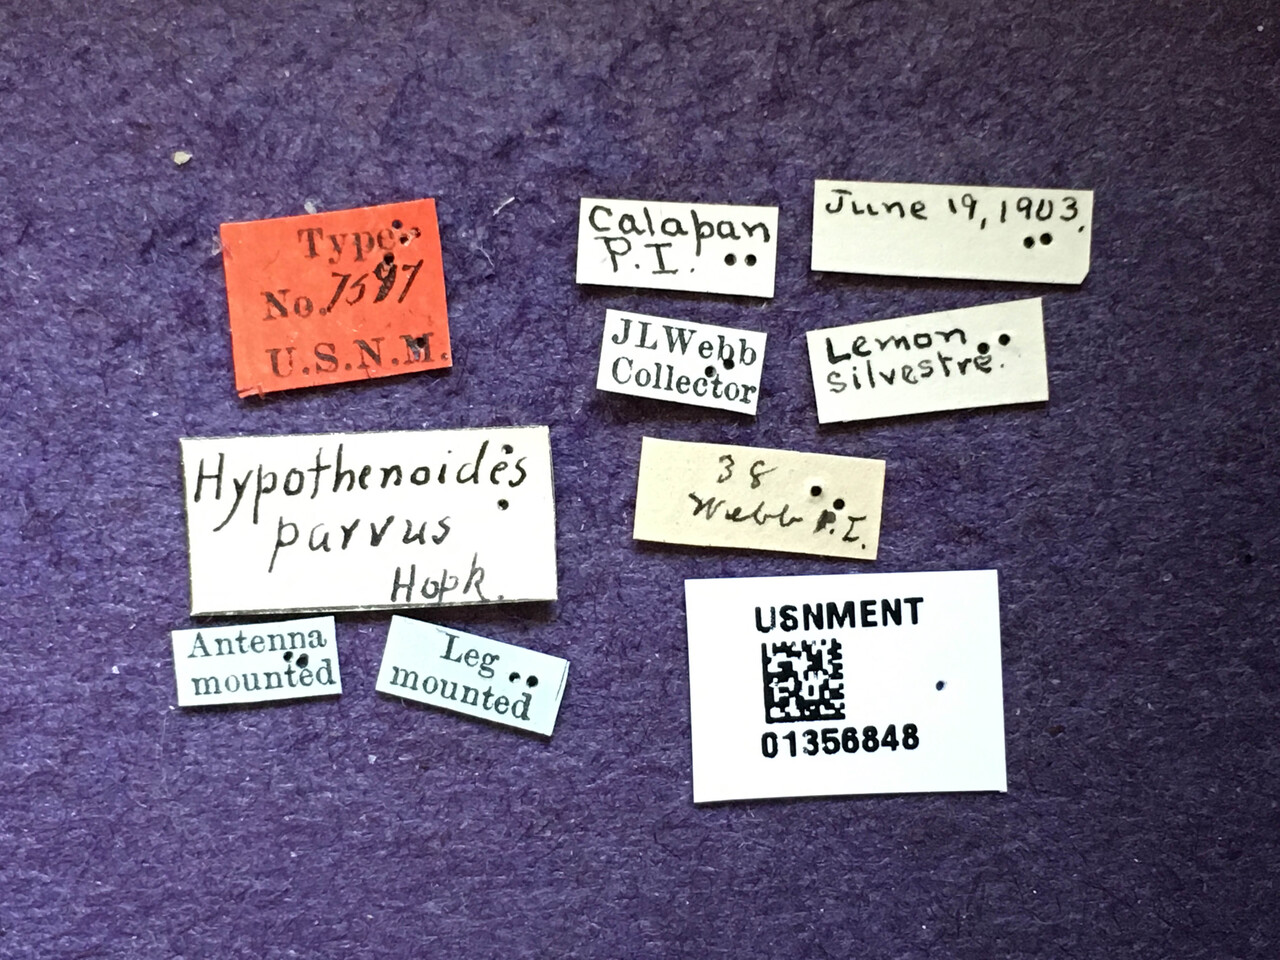 Type
No. 7597
U.S.N.M.
Calapan
P.I.
June 19, 1903.
JLWebb
Collector
Lemon
silvestre.
Hypothenoides
parvus
Hopk.
38
Webb P.I.
Antenna
mounted
Leg
mounted
USNMENT
01356848